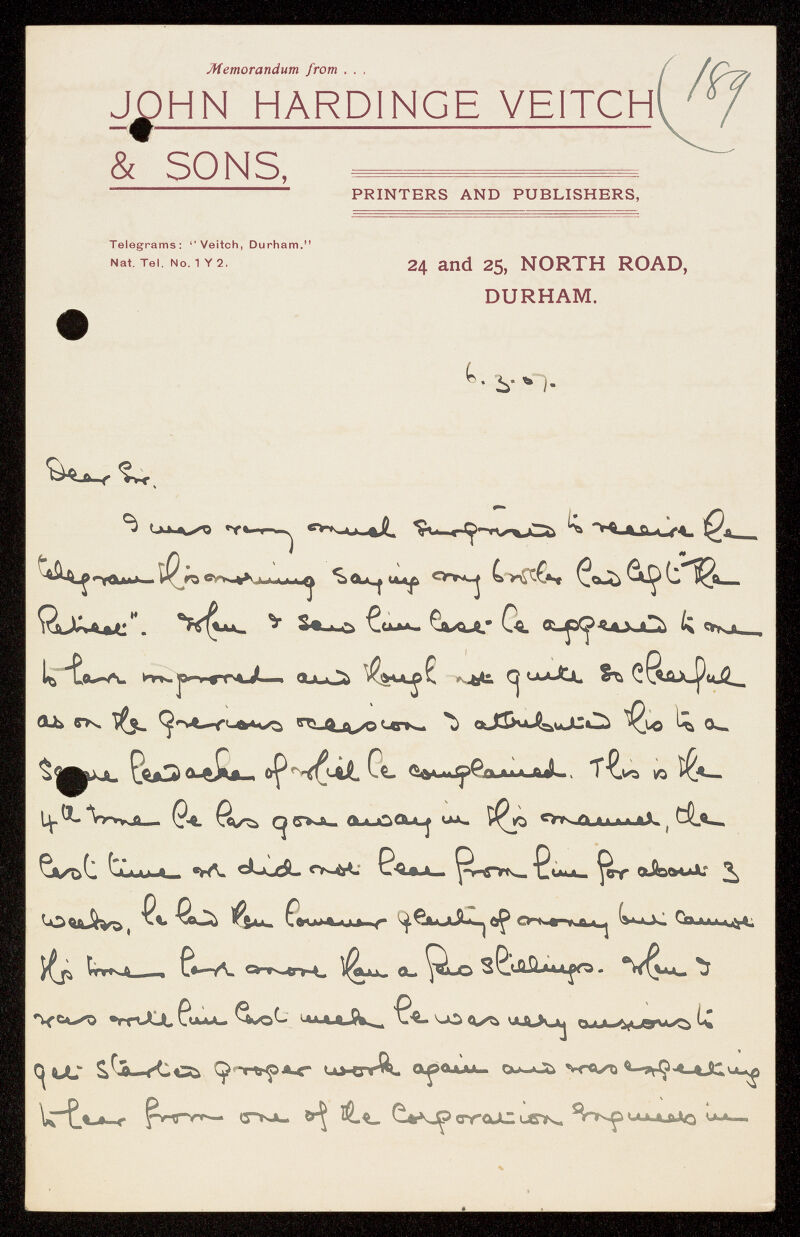 Memorandum from . . .
189
JOHN HARDINGE VEITCH
& SONS,
PRINTERS AND PUBLISHERS,
Telegrams: "Veitch, Durham."
Nat. Tel. No. 1 Y 2.
24 and 25, NORTH ROAD,
DURHAM.
6.3.07.
Dear Sir.
I was very much surprised to receive the
telegram this morning saying my brother had left "The
Retreat". When I saw him last he appeared to me
to have improved and though not quite so cheerful
as on the previous occasion I attributed this to a
severe headache of which he complained. This is the
4th time he has gone away in this manner, the
last time we did not hear from him for about 3
weeks, he had then however plenty of money but cannot
this time have more than a few shillings. When I
was with him last week he was very anxious to
get started proper work again and was expecting
to hear from one of the Corporation Engineers in